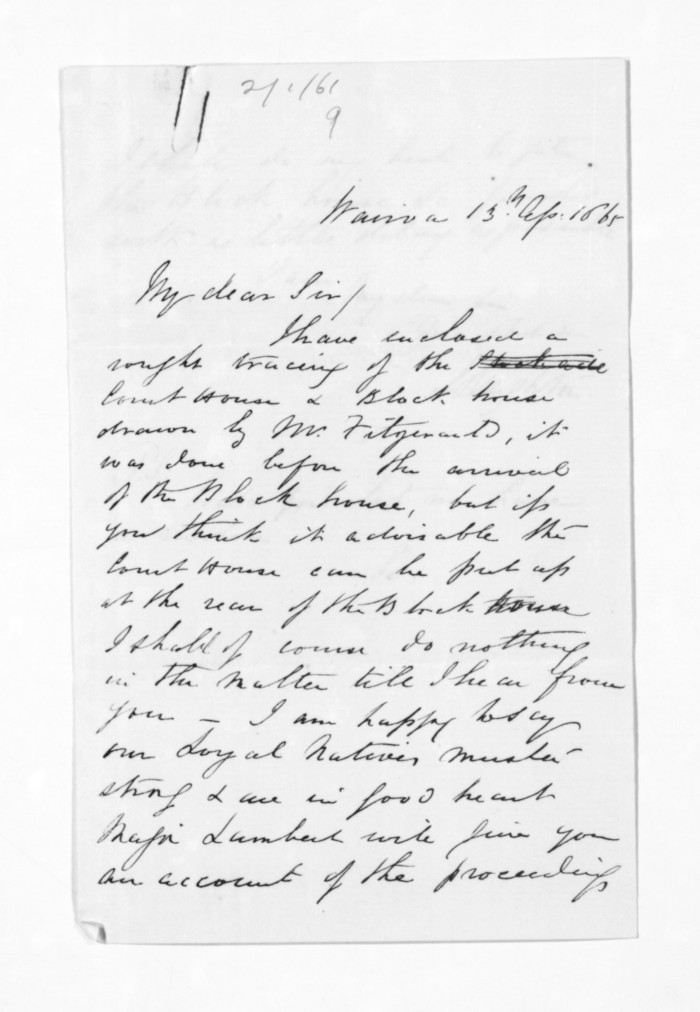 2/1/61
9
Wairoa 13th Ap. 1865
My dear Sir/
I have enclosed a
rought tracing of the Stockade
Court House & Block house
drawn by Mr. Fitzgerald, it
was done before the arrival
of the Block house, but if
you think it advisable the
Court House can be put up
at the rear of the Block house
I shall of course do nothing
in the matter till I hear from
you – I am happy to say
our Loyal Natives muster
strong & are in good heart
Major Lambert will give you
an account of the proceedings